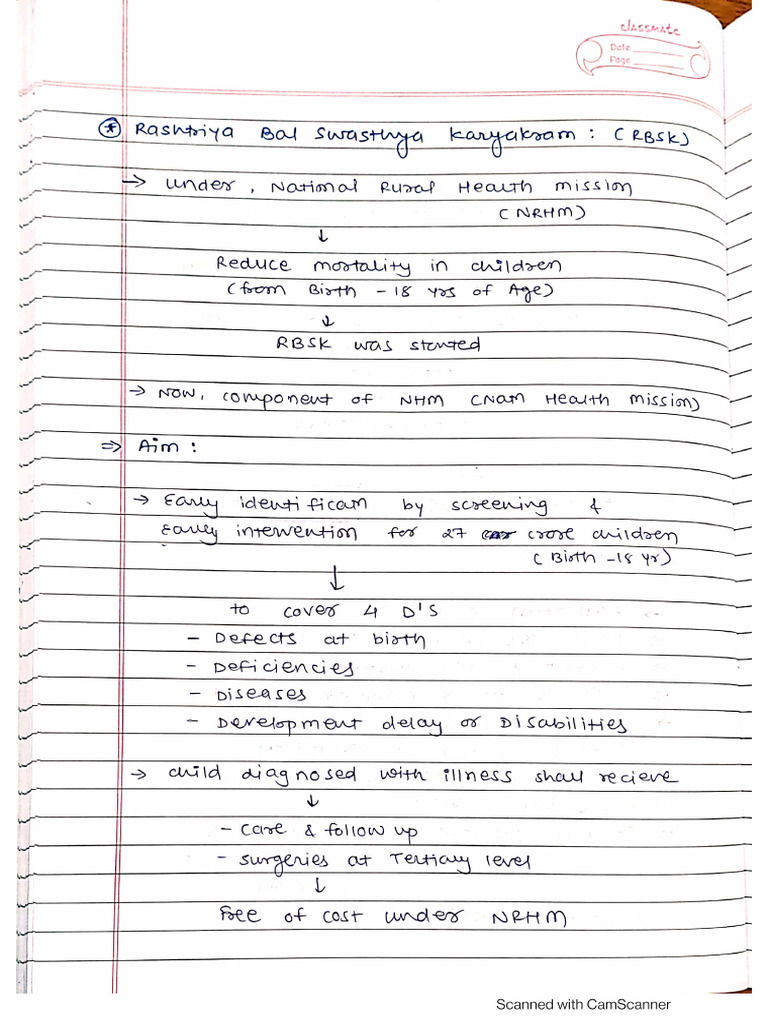 classmate
Date
Page
* Rashtriya Bal Swasthya Karyakram : (RBSK)
→ under, National Rural Health mission
(NRHM)
↓
Reduce mortality in children
(from Birth - 18 yrs of Age)
↓
RBSK was started
→ Now, component of NHM (Nam Health mission)
⇒ Aim :
→ Early identificam by screening &
Early intervention for 27 crore children
(Birth - 18 yr)
↓
to cover 4 D's
- Defects at birth
- Deficiencies
- Diseases
- Development delay or Disabilities
→ child diagnosed with illness shall recieve
↓
- care & follow up
- surgeries at Tertiary level
↓
Free of cost under NRHM
Scanned with CamScanner